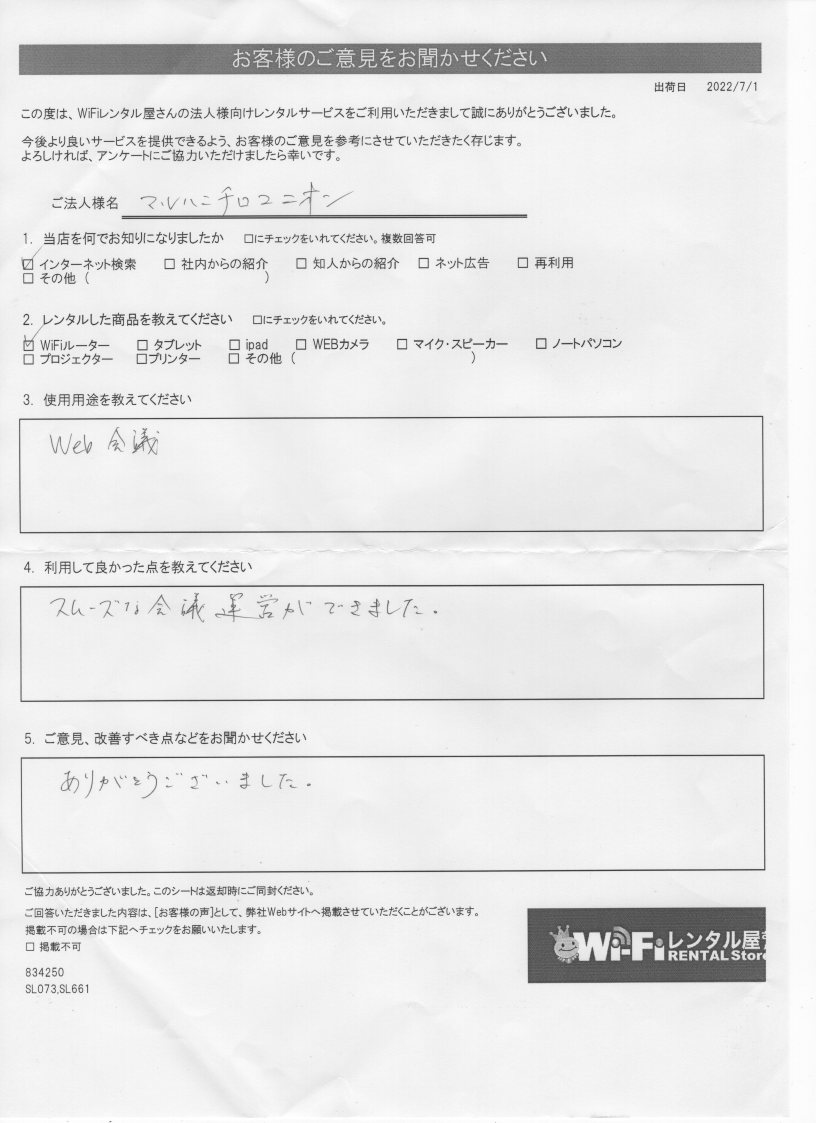 お客様のご意見をお聞かせください
出荷日 2022/7/1
この度は、WiFiレンタル屋さんの法人様向けレンタルサービスをご利用いただきまして誠にありがとうございました。
今後より良いサービスを提供できるよう、お客様のご意見を参考にさせていただきたく存じます。
よろしければ、アンケートにご協力いただけましたら幸いです。
ご法人様名 マルハニチロユニオン
1. 当店を何でお知りになりましたか □にチェックをいれてください。複数回答可
☑ インターネット検索 □ 社内からの紹介 □ 知人からの紹介 □ ネット広告 □ 再利用
□ その他 ( )
2. レンタルした商品を教えてください □にチェックをいれてください。
☑ WiFiルーター □ タブレット □ ipad □ WEBカメラ □ マイク・スピーカー □ ノートパソコン
□ プロジェクター □プリンター □ その他 ( )
3. 使用用途を教えてください
Web 会議
4. 利用して良かった点を教えてください
スムーズな会議運営ができました。
5. ご意見、改善すべき点などをお聞かせください
ありがとうございました。
ご協力ありがとうございました。このシートは返却時にご同封ください。
ご回答いただきました内容は、[お客様の声]として、弊社Webサイトへ掲載させていただくことがございます。
掲載不可の場合は下記へチェックをお願いいたします。
□ 掲載不可
834250
SL073,SL661
Wi-Fiレンタル屋
RENTAL Store